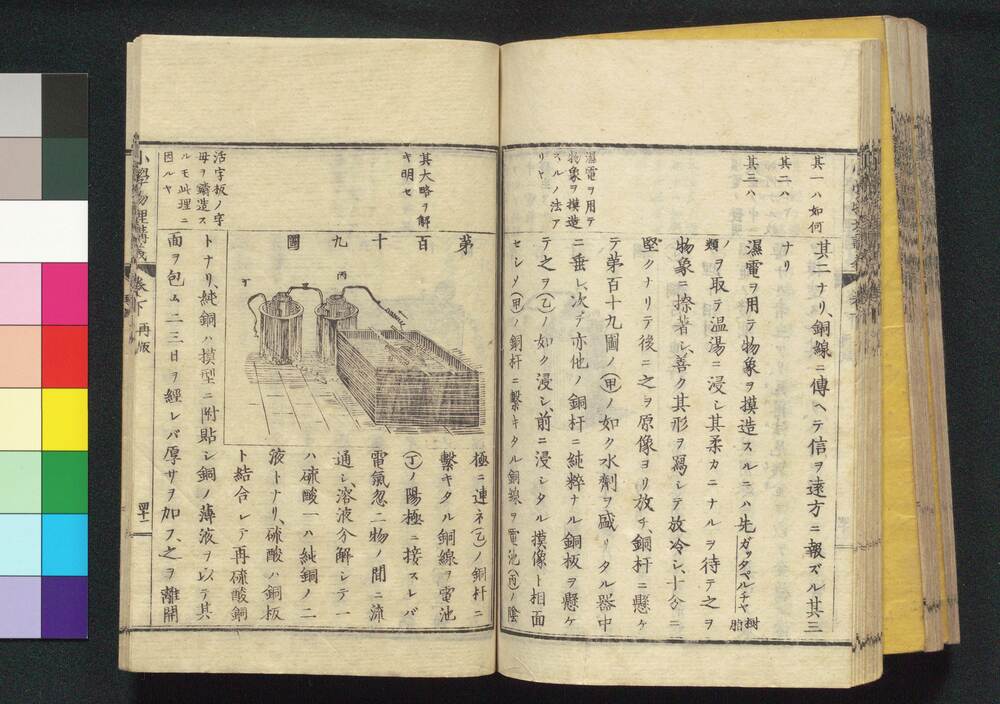 其一ハ如何
其二ハ
其三ハ
其二ナリ、銅線ニ傳ヘテ信ヲ遠方ニ報ズル其三
ナリ
濕電ヲ用テ物象ヲ摸造スルニハ先ガッタペルチヤ樹脂
ノ類ヲ取テ温湯ニ浸シ其柔カニナルヲ待テ之ヲ
物象ニ捺著シ、善ク其形ヲ寫シテ放冷シ、十分ニ
堅クナリテ後ニ之ヲ原像ヨリ放チ、銅杆ニ懸ケ
濕電ヲ用テ
物象ヲ摸造
スルノ法ア
リヤ
テ第百十九圖ノ(甲)ノ如ク水劑ヲ盛リタル器中
ニ垂レ、次テ亦他ノ銅杆ニ純粹ナル銅板ヲ懸ケ
テ之ヲ(乙)ノ如ク浸シ、前ニ浸シタル摸像ト相面
セシメ(甲)ノ銅杆ニ繫キタル銅線ヲ電池(丙)ノ陰
其大略ヲ解
キ明セ
第百十九圖
丙
丁
極ニ連ネ(乙)ノ銅杆ニ
繫キタル銅線ヲ電池
(丁)ノ陽極ニ接スレバ
電氣忽二物ノ間ニ流
通シ、溶液分解シテ一
ハ硫酸一ハ純銅ノ二
液トナリ、硫酸ハ銅板
ト結合シテ再硫酸銅
活字板ノ字
母ヲ鑄造ス
ルモ此理ニ
因ルヤ
トナリ、純銅ハ摸型ニ附貼シ銅ノ薄液ヲ以テ其
面ヲ包ム二三日ヲ經レバ厚サヲ加フ、之ヲ離開
小學物理講義 卷下 再版